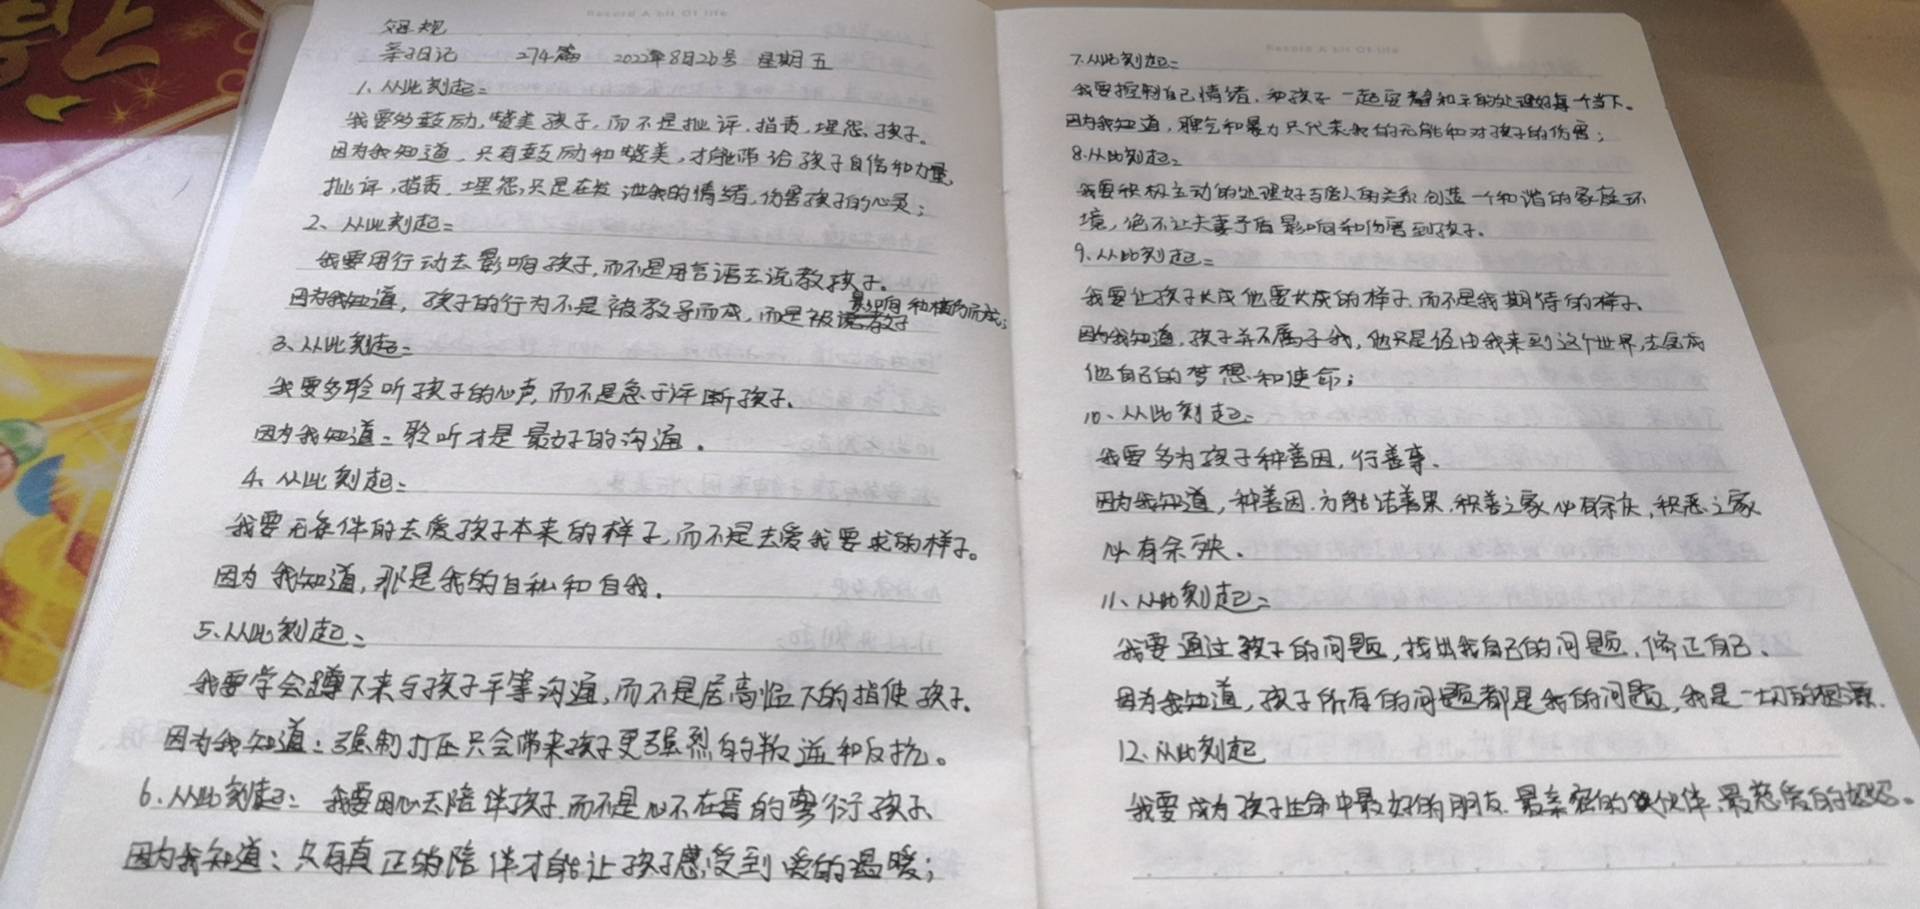 Record A bit Of life
亲子日记 274篇 2022年8月26号 星期五
1、从此刻起:
我要多鼓励,赞美孩子,而不是批评、指责、埋怨、孩子。
因为我知道、只有鼓励和赞美,才能带给孩子自信和力量,
批评,指责、埋怨,只是在发泄我的情绪,伤害孩子的心灵;
2、从此刻起:
我要用行动去影响孩子,而不是用言语去说教孩子。
因为我知道,孩子的行为不是被教导而成,而是被影响和模仿而成;
3、从此刻起:
我要多聆听孩子的心声,而不是急于评断孩子、
因为我知道:聆听才是最好的沟通。
4、从此刻起:
我要无条件的去爱孩子本来的样子,而不是去爱我要求的样子。
因为我知道,那是我的自私和自我.
5、从此刻起:
我要学会蹲下来与孩子平等沟通,而不是居高临下的指使孩子.
因为我知道:强制打压只会带来孩子更强烈的叛逆和反抗。
6、从此刻起: 我要用心去陪伴孩子,而不是心不在焉的敷衍孩子、
因为我知道:只有真正的陪伴才能让孩子感受到爱的温暖;
Record A bit Of life
7.从此刻起:
我要控制自己情绪、和孩子一起安静和平的处理好每一个当下。
因为我知道,脾气和暴力只代表我的无能和对孩子的伤害;
8.从此刻起:
我要积极主动的处理好与家人的关系,创造一个和谐的家庭环
境,绝不让夫妻矛盾影响和伤害到孩子.
9、从此刻起:
我要让孩子长成他要长成的样子,而不是我期待的样子、
因为我知道,孩子并不属于我,他只是经由我来到这个世界,去完成
他自己的梦想和使命;
10、从此刻起:
我要多为孩子种善因,行善事、
因为我知道,种善因、方能结善果、积善之家必有余庆,积恶之家
必有余殃、
11、从此刻起:
我要通过孩子的问题,找出我自己的问题、修正自己、
因为我知道,孩子所有的问题都是我的问题,我是一切的根源.
12、从此刻起
我要成为孩子生命中最好的朋友、最亲密的伙伴、最慈爱的妈妈。